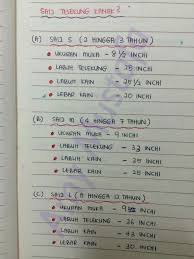 SAIZ TELEKUNG KANAK²
(A) SAIZ S (2 HINGGA 3 TAHUN)
• UKURAN MUKA - 8 1/2 INCHI
• LABUH TELEKUNG - 28 INCHI
• LABUH KAIN - 25 1/2 INCHI
• LEBAR KAIN - 20 INCHI
(B) SAIZ M (4 HINGGA 7 TAHUN)
• UKURAN MUKA - 9 INCHI
• LABUH TELEKUNG - 32 INCHI
• LABUH KAIN - 35 INCHI
• LEBAR KAIN - 25 INCHI
(C) SAIZ L (8 HINGGA 12 TAHUN)
• UKURAN MUKA - INCHI
• LABUH TELEKUNG - 36 INCHI
• LABUH KAIN - 43 INCHI
• LEBAR KAIN - 30 INCHI